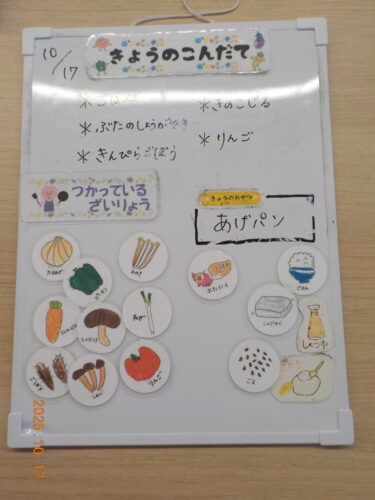 10/17
きょうのこんだて
*ごはん
*きのこじる
*ぶたのしょうがやき
*りんご
*きんぴらごぼう
つかっている
ざいりょう
きょうのおやつ
あげパン
たまねぎ
ピーマン
えのき
ぶたにく
ごはん
にんじん
しいたけ
ねぎ
こんにゃく
しょうゆ
ごぼう
しめじ
りんご
ごま
2025.10.17